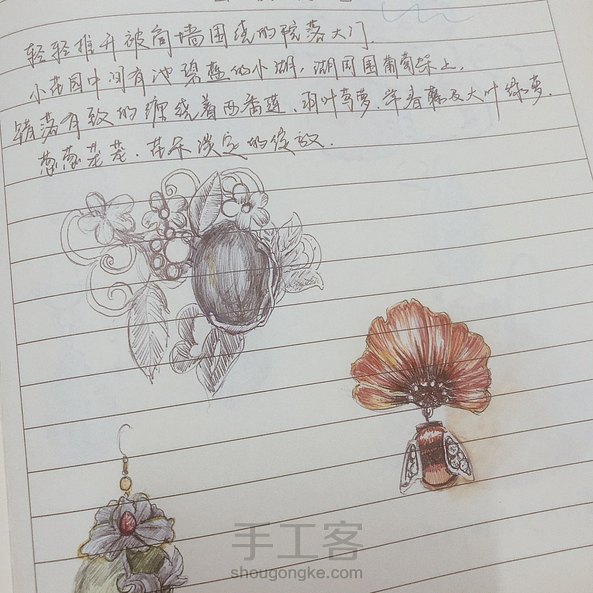 轻轻推开被高墙围绕的院落大门
小花园中间有池碧蓝的小湖，湖周围葡萄架上，
错落有致的缠绕着西番莲、羽叶茑萝、常春藤及大叶绿萝，
葱葱茏茏、花朵淡定的绽放.
手工客
shougongke.com